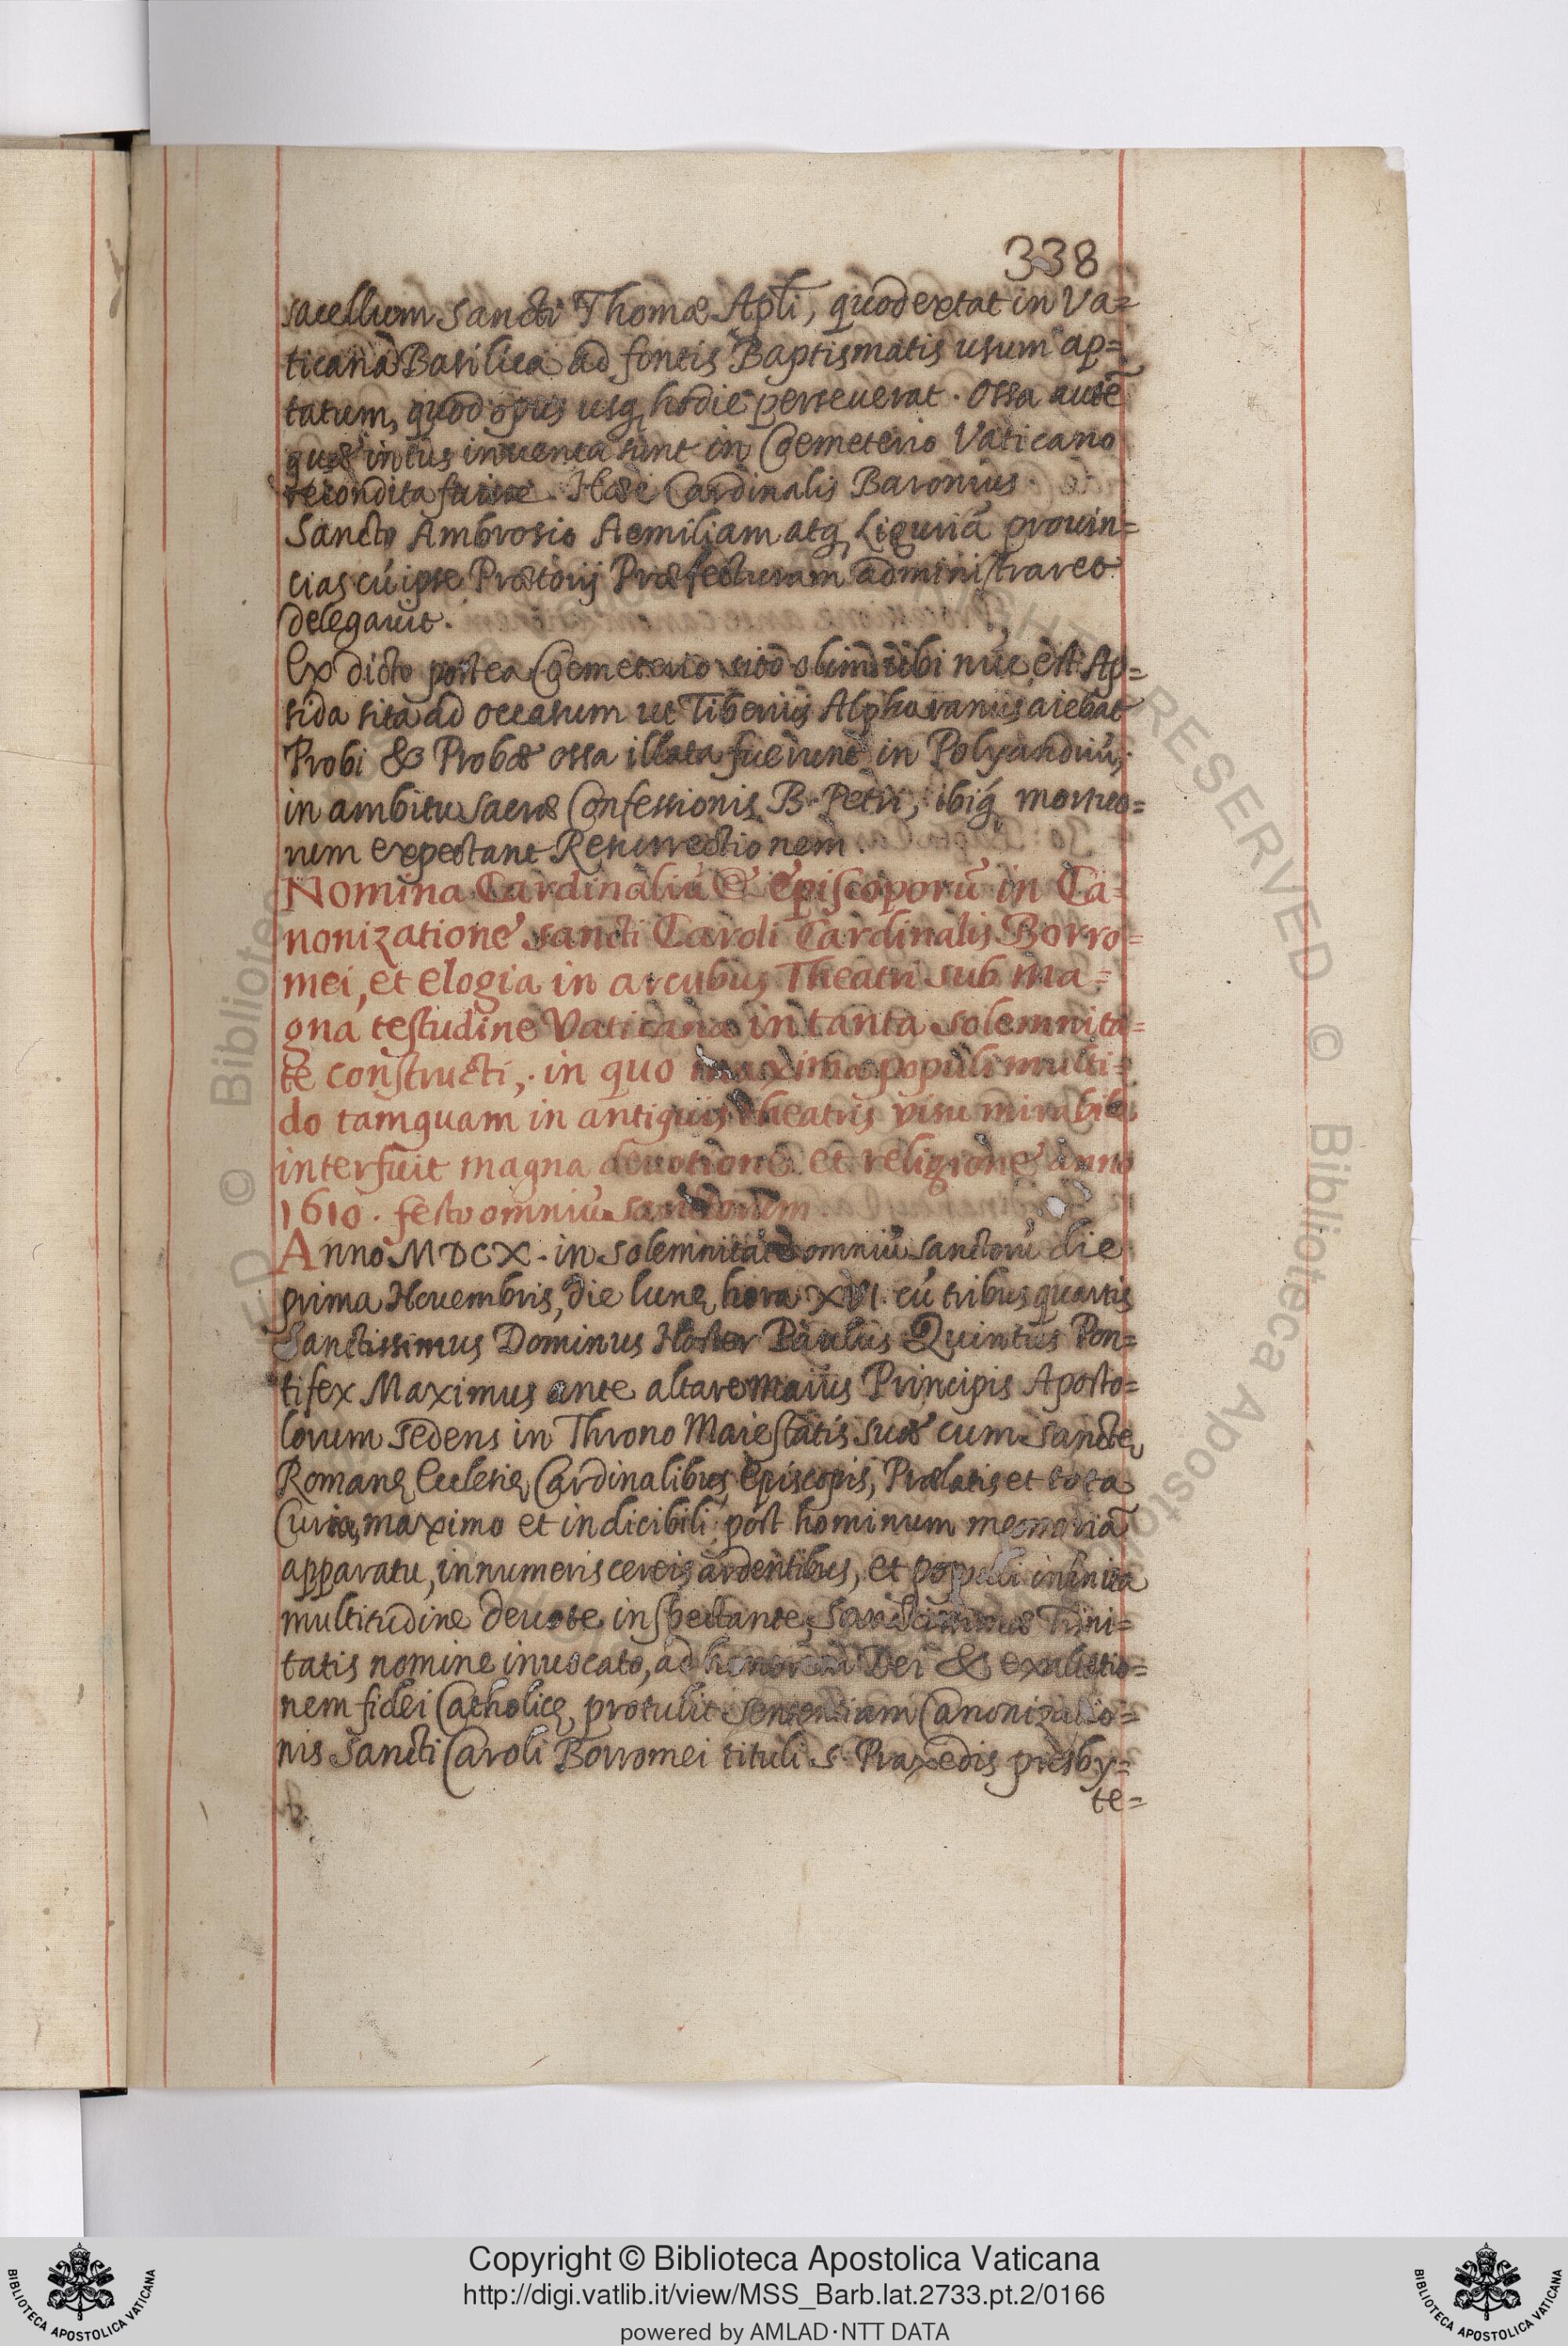 338
sacellum Sancti Thomæ Apłi, quod extat in Va=
ticana Basilica ad fontis Baptismatis usum ap=
tatum, quod opus usq hodie perseuerat. Ossa autē
quæ intus inuenta sunt in Coemeterio Vaticano
recondita fuere. Hæc Cardinalis Baronius.
Sancto Ambrosio Aemiliam atq Liguriā prouin=
cias cū ipse Prætorij Præfecturam administraret
delegauit.
Ex dicto postea Coemeterio olim ubi nūc est Ap=
sida sita ad occasum ut Tiberius Alpharanus aiebat
Probi & Probæ ossa illata fuerunt in Polyandriū,
in ambitu sacræ Confessionis B. Petri, ibiq́ mortuo=
rum expectant Resurrectionem.
Nomina Cardinaliū & Episcoporū in Ca=
nonizatione sancti Caroli Cardinalis Borro=
mei, et elogia in arcubus Theatri sub ma=
gna testudine Vaticana in tanta solemnita=
te constructi, in quo maxima populi multi=
do tamquam in antiquis theatris visu mirabile
interfuit magna deuotione et religione anno
1610. festo omniū sanctorum
Anno MDCX. in solemnitate omniū sanctorū die
prima Nouembris, die lunę hora XVI. cū tribus quartis
Sanctissimus Dominus Noster Paulus Quintus Pon=
tifex Maximus ante altare maius Principis Aposto=
lorum sedens in Throno Maiestatis suæ cum sanctę
Romanę Ecclesię Cardinalibus, Episcopis, Prælatis et tota
Curia, maximo et indicibili post hominum memoriā
apparatu, innumeris cereis ardentibus, et populi infinita
multitudine deuote inspectante, Sanctissimæ Trini=
tatis nomine inuocato, ad honorem Dei & exaltatio=
nem fidei Catholicę, protulit sententiam Canonizatio=
nis Sancti Caroli Borromei tituli S. Praxedis presby=
te=
Copyright © Biblioteca Apostolica Vaticana
http://digi.vatlib.it/view/MSS_Barb.lat.2733.pt.2/0166
powered by AMLAD·NTT DATA
BIBLIOTECA APOSTOLICA VATICANA
BIBLIOTECA APOSTOLICA VATICANA